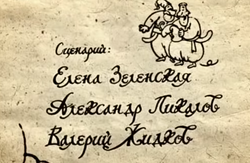 Сценарий:
Елена Зеленская
Александр Пикалов
Валерий Жидков